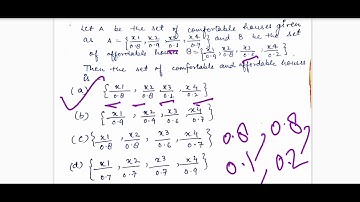 Let A be the set of comfortable houses given
as A = {x1/0.8, x2/0.9, x3/0.1, x4/0.7} and B be the set
of affordable houses B = {x1/0.9, x2/0.8, x3/0.6, x4/0.2}
Then the set of comfortable and affordable houses
is
(a) {x1/0.8, x2/0.8, x3/0.1, x4/0.2}
(b) {x1/0.9, x2/0.9, x3/0.6, x4/0.7}
(c) {x1/0.8, x2/0.8, x3/0.6, x4/0.7}
(d) {x1/0.7, x2/0.7, x3/0.7, x4/0.9}
0.8, 0.8,
0.1, 0.2